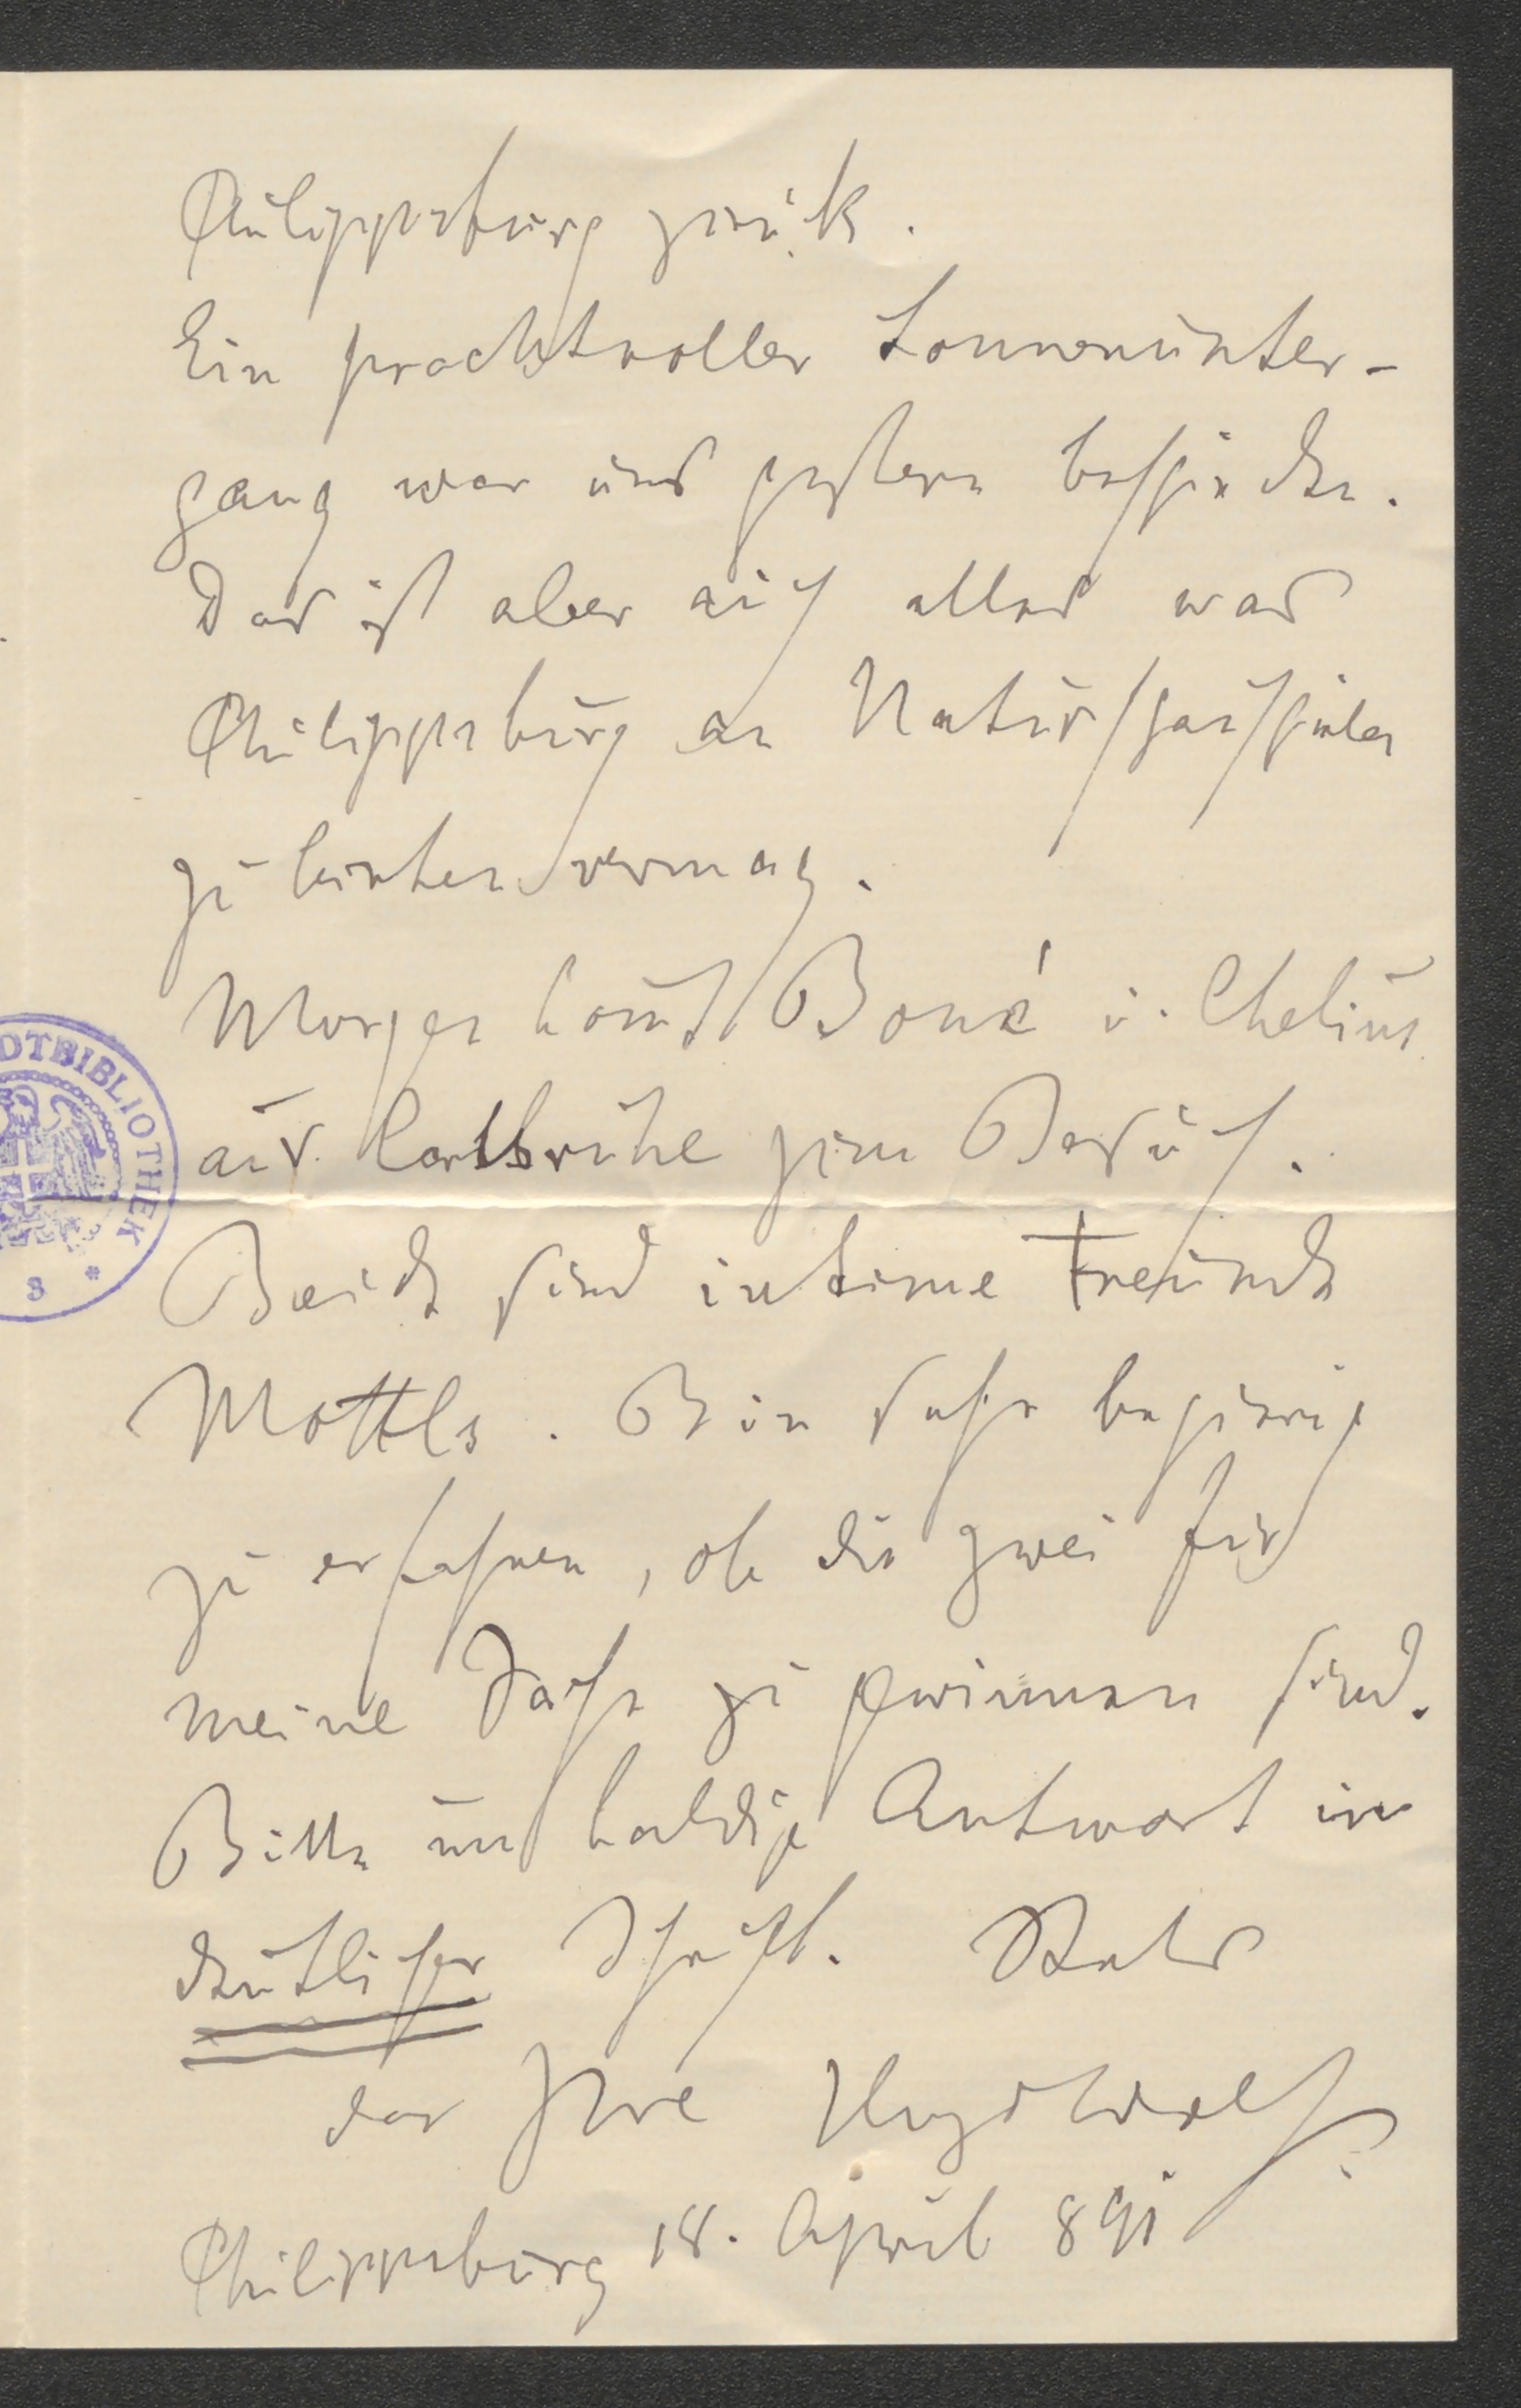 Philippsburg zurück.
Ein prachtvoller Sonnenunter-
gang war uns gestern beschieden.
Das ist aber auch alles was
Philippsburg an Naturschauspielen
zu bieten vermag.
Morgen komt Bonné u. Chelius
aus Carlsruhe zum Besuch.
Beide sind intime Freunde
Mottls. Bin sehr begierig
zu erfahren, ob die zwei für
meine Sache zu gewinnen sind.
Bitte um baldige Antwort in
deutlicher Schrift. Stets
der Ihre Hugo Wolf
Philippsburg 18. April 891
DTBIBLIOTHEK